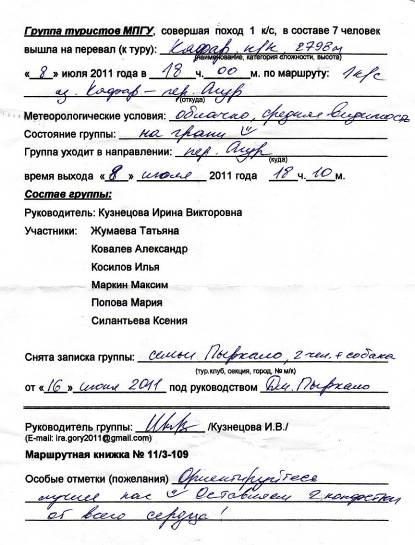 Группа туристов МПГУ, совершая поход 1 к/с, в составе 7 человек
вышла на перевал (к туру): Кафар, н/к, 2798м
(наименование, категория сложности, высота)
« 8 » июля 2011 года в 18 ч. 00 м. по маршруту: 1 к/с
Кафар – пер. Агур
(откуда)
Метеорологические условия: облачно, средняя видимость
Состояние группы: на грани
Группа уходит в направлении: пер. Агур
(куда)
время выхода « 8 » июля 2011 года 18 ч. 10 м.
Состав группы:
Руководитель: Кузнецова Ирина Викторовна
Участники: Жумаева Татьяна
Ковалев Александр
Косилов Илья
Маркин Максим
Попова Мария
Силантьева Ксения
Снята записка группы: семьи Пыркало, 2 чел. + собака
(тур.клуб, секция, город, № м/к)
от « 16 » июня 2011 под руководством Дм. Пыркало
Руководитель группы: /Кузнецова И.В./
(E-mail: ira.gory2011@gmail.com)
Маршрутная книжка № 11/3-109
Особые отметки (пожелания) Ориентируйтесь
лучше нас Оставляем 2 конфетки
от всего сердца!